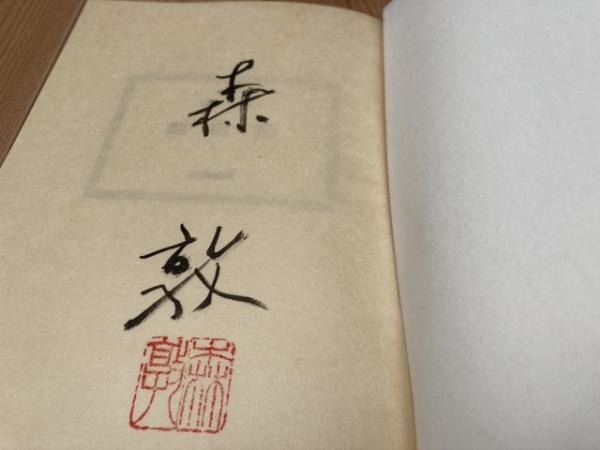 森
敦
森敦